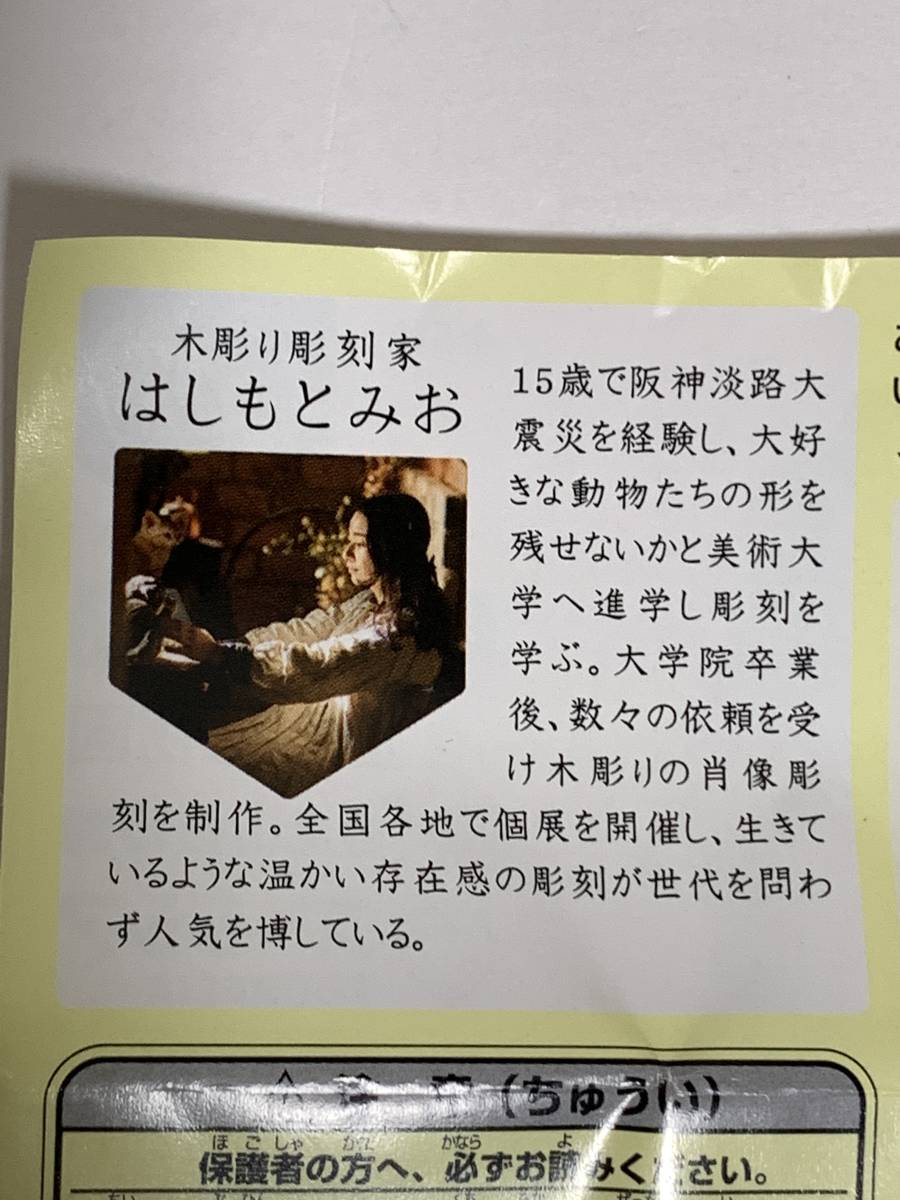 木彫り彫刻家
はしもとみお
15歳で阪神淡路大
震災を経験し、大好
きな動物たちの形を
残せないかと美術大
学へ進学し彫刻を
学ぶ。大学院卒業
後、数々の依頼を受
け木彫りの肖像彫
刻を制作。全国各地で個展を開催し、生きて
いるような温かい存在感の彫刻が世代を問わ
ず人気を博している。
注 意 (ちゅうい)
保護者の方へ、必ずお読みください。